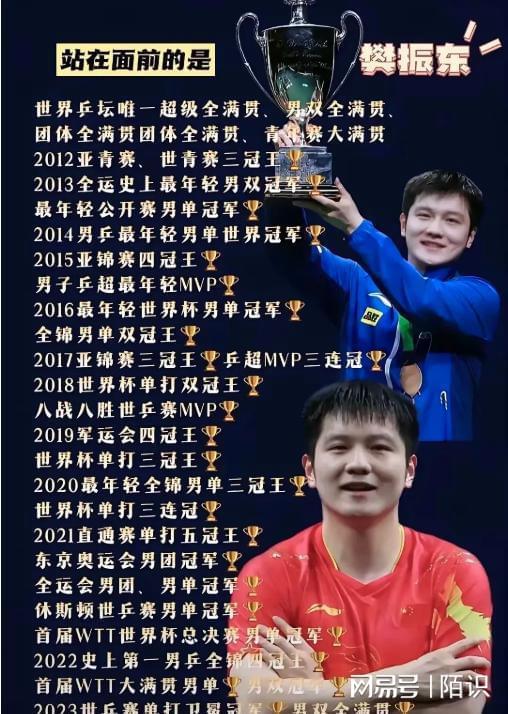 站在面前的是
樊振东
世界乒坛唯一超级全满贯、男双全满贯、
团体全满贯团体全满贯、青年赛大满贯
2012亚青赛、世青赛三冠王🏆
2013全运史上最年轻男双冠军🏆
最年轻公开赛男单冠军🏆
2014男乒最年轻男单世界冠军🏆
2015亚锦赛四冠王🏆
男子乒超最年轻MVP🏆
2016最年轻世界杯男单冠军🏆
全锦男单双冠王🏆
2017亚锦赛三冠王🏆乒超MVP三连冠🏆
2018世界杯单打双冠王🏆
八战八胜世乒赛MVP🏆
2019军运会四冠王🏆
世界杯单打三冠王🏆
2020最年轻全锦男单三冠王🏆
世界杯单打三连冠🏆
2021直通赛单打五冠王🏆
东京奥运会男团冠军🏆
全运会男团、男单冠军🏆
休斯顿世乒赛男单冠军🏆
首届WTT世界杯总决赛男单冠军🏆
2022史上第一男乒全锦四冠王🏆
首届WTT大满贯男单🏆男双冠军🏆
2023世乒赛单打卫冕冠军🏆男双全满贯🏆
网易号 | 陌识